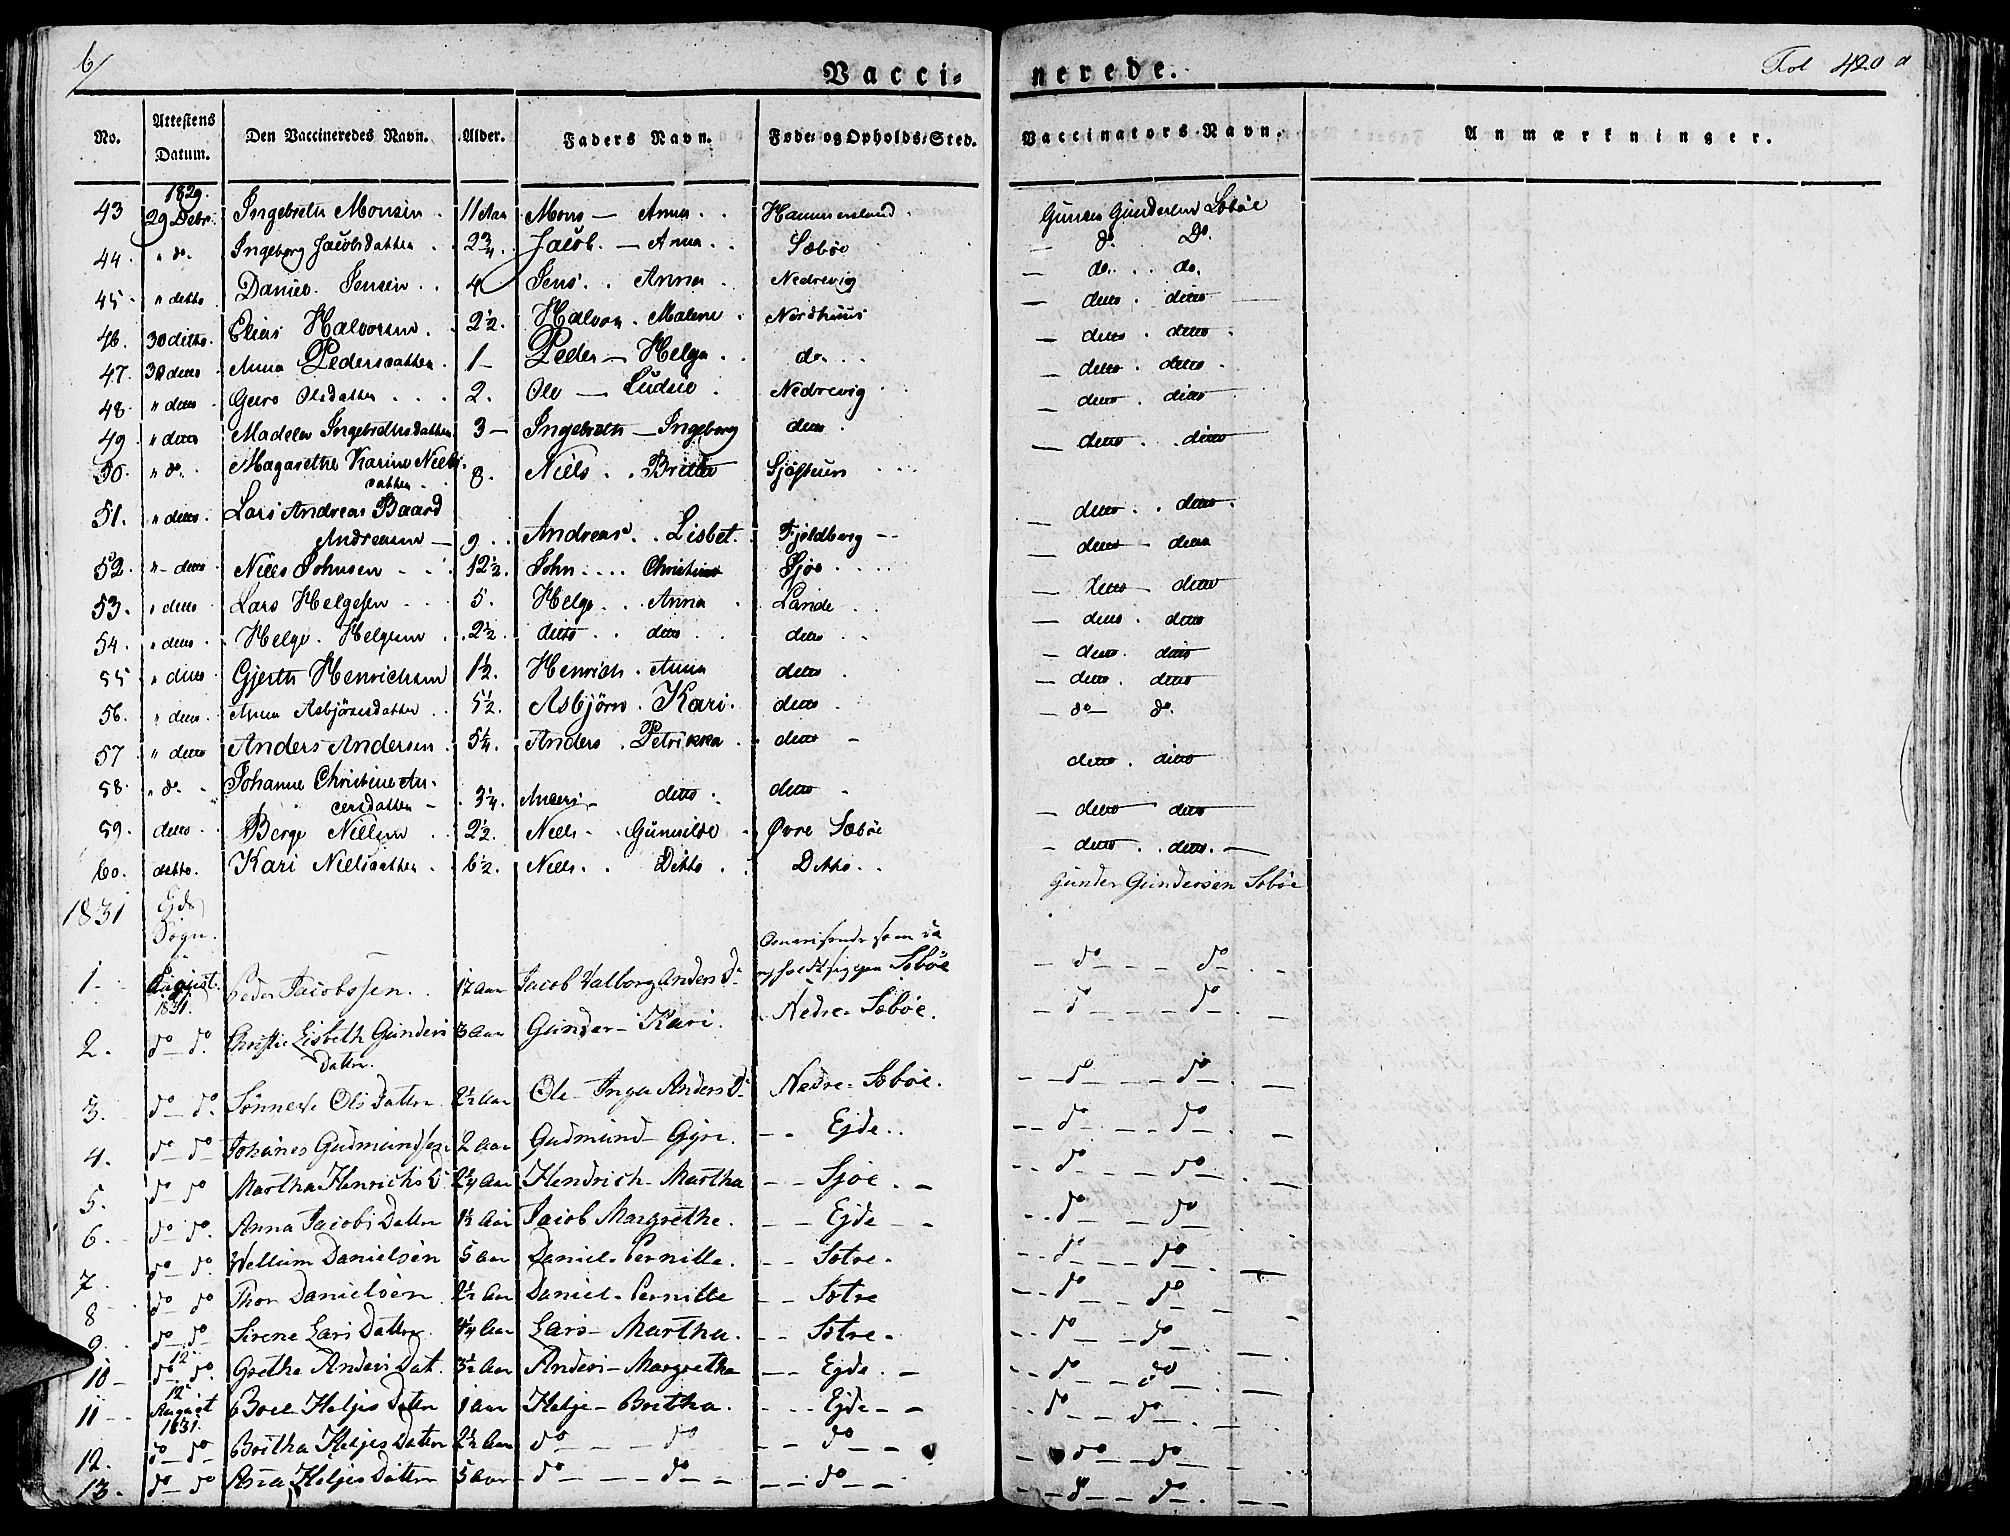 6/
Vacci- nerede.
Fol 420 a
No. Attestens Datum. Den Vaccineredes Navn. Alder. Faders Navn. Føde- og Opholds-Sted. Vaccinators-Navn. Anmærkninger.
1829.
43 29 Debr. Ingebreth Monsen 11 Aar Mons — Anna Hammersland Gunder Gundersen Søbøe
44 " do. Ingeborg Jacobsdatter 2 3/4 Jacob — Anna Sæbøe — do. Do.
45 " ditto Daniel Jensen 4 Jens Anna Nedrevig — do. do.
46. 30 ditto Elias Halvorsen 2 1/2. Halvor Malene Nordhuus — ditto ditto
47. 30 ditto Anna Pedersdatter 1 — Peder — Helga do. — ditto ditto
48. " ditto Guro Olsdatter 2. Ole — Nedrevig — ditto ditto
49 " ditto Madele Ingebrethsdatter 3 — Ingebreth — Ingeborg ditto — ditto ditto
50. " do. Magarethe Karine Niels- 8. Niels Britha — ditto ditto
datter
51. " ditto Lars Andreas Baard
Andreasen — 9 Andreas Lisbet Fjeldberg — ditto ditto
52. " ditto Niels Johnsen 12 1/2. John Christine Sjøe — ditto ditto
53. " ditto Lars Helgesen 5. Helge Anna Lande — ditto ditto
54. " ditto Helge Helgesen 2 1/2. ditto ditto ditto — ditto ditto
55 " ditto Gjerth Henrichsen 1 1/2. Henrich Anna ditto — ditto ditto
56. " ditto Anna Asbjørnsdatter 5 1/2. Asbjørn Kari ditto — ditto ditto
57 " ditto Anders Andersen 5 1/4. Anders Petrikka ditto — do — do.
58. " do. Johanne Christine An-
dersdatter 3 1/4. Anders ditto ditto ditto ditto
59. ditto Børge Nielsen 2 1/2. Niels Gunnilde Øvre Sæbøe — ditto ditto
60. ditto. Kari Nielsdatter 6 1/2. Niels Ditto Ditto — ditto ditto
Gunder Gundersen Søbøe
1831 Ejde
Sogn.
1. August 1831. Peder Jacobssen 17 Aar Jacob Valborg Anders D. Søbøe — do — do
2. do — do. Christie Lisbeth Gunders Datter. 3 Aar Gunder — Kari. Nedre Sæbøe. — do — do
3. do — do. Sønneve Ols Datter 2 1/2 Aar Ole — Inga Anders D. Nedre Søbøe. — do — do
4. do — do Johanes Gudmundssen 2 Aar Gudmund — Gyri. Ejde — do — do
5. do — do Martha Henrichs D. 2 1/4 Aar Hendrich — Martha Sjøe — do — do
6. do — do. Anna Jacobs Datter 1 1/2 Aar Jacob Margrethe. Ejde — do — do
7. do — do. Wellum Danielsen 5 Aar Daniel — Pernille. Sotre — do — do
8 do — do Thor Danielsen 2 1/2 Aar Daniel — Pernille Sotre — do — do
9. do — do Sirene Lars Datter 4 1/4 Aar Lars — Martha. Sotre — do — do
10 12 do — do. Grethe Anders Dat. 3 1/2 Aar Anders — Margretha Ejde — do — do
11 12 August 1831. Boel Heljes Datter 1 Aar Helje — Britha. Ejde — do — do
12. do — do Britha Heljes Datter 2 1/2 Aar do — do do — do — do
13. do — do Anna Heljes Datter 5 Aar do — do do — do — do